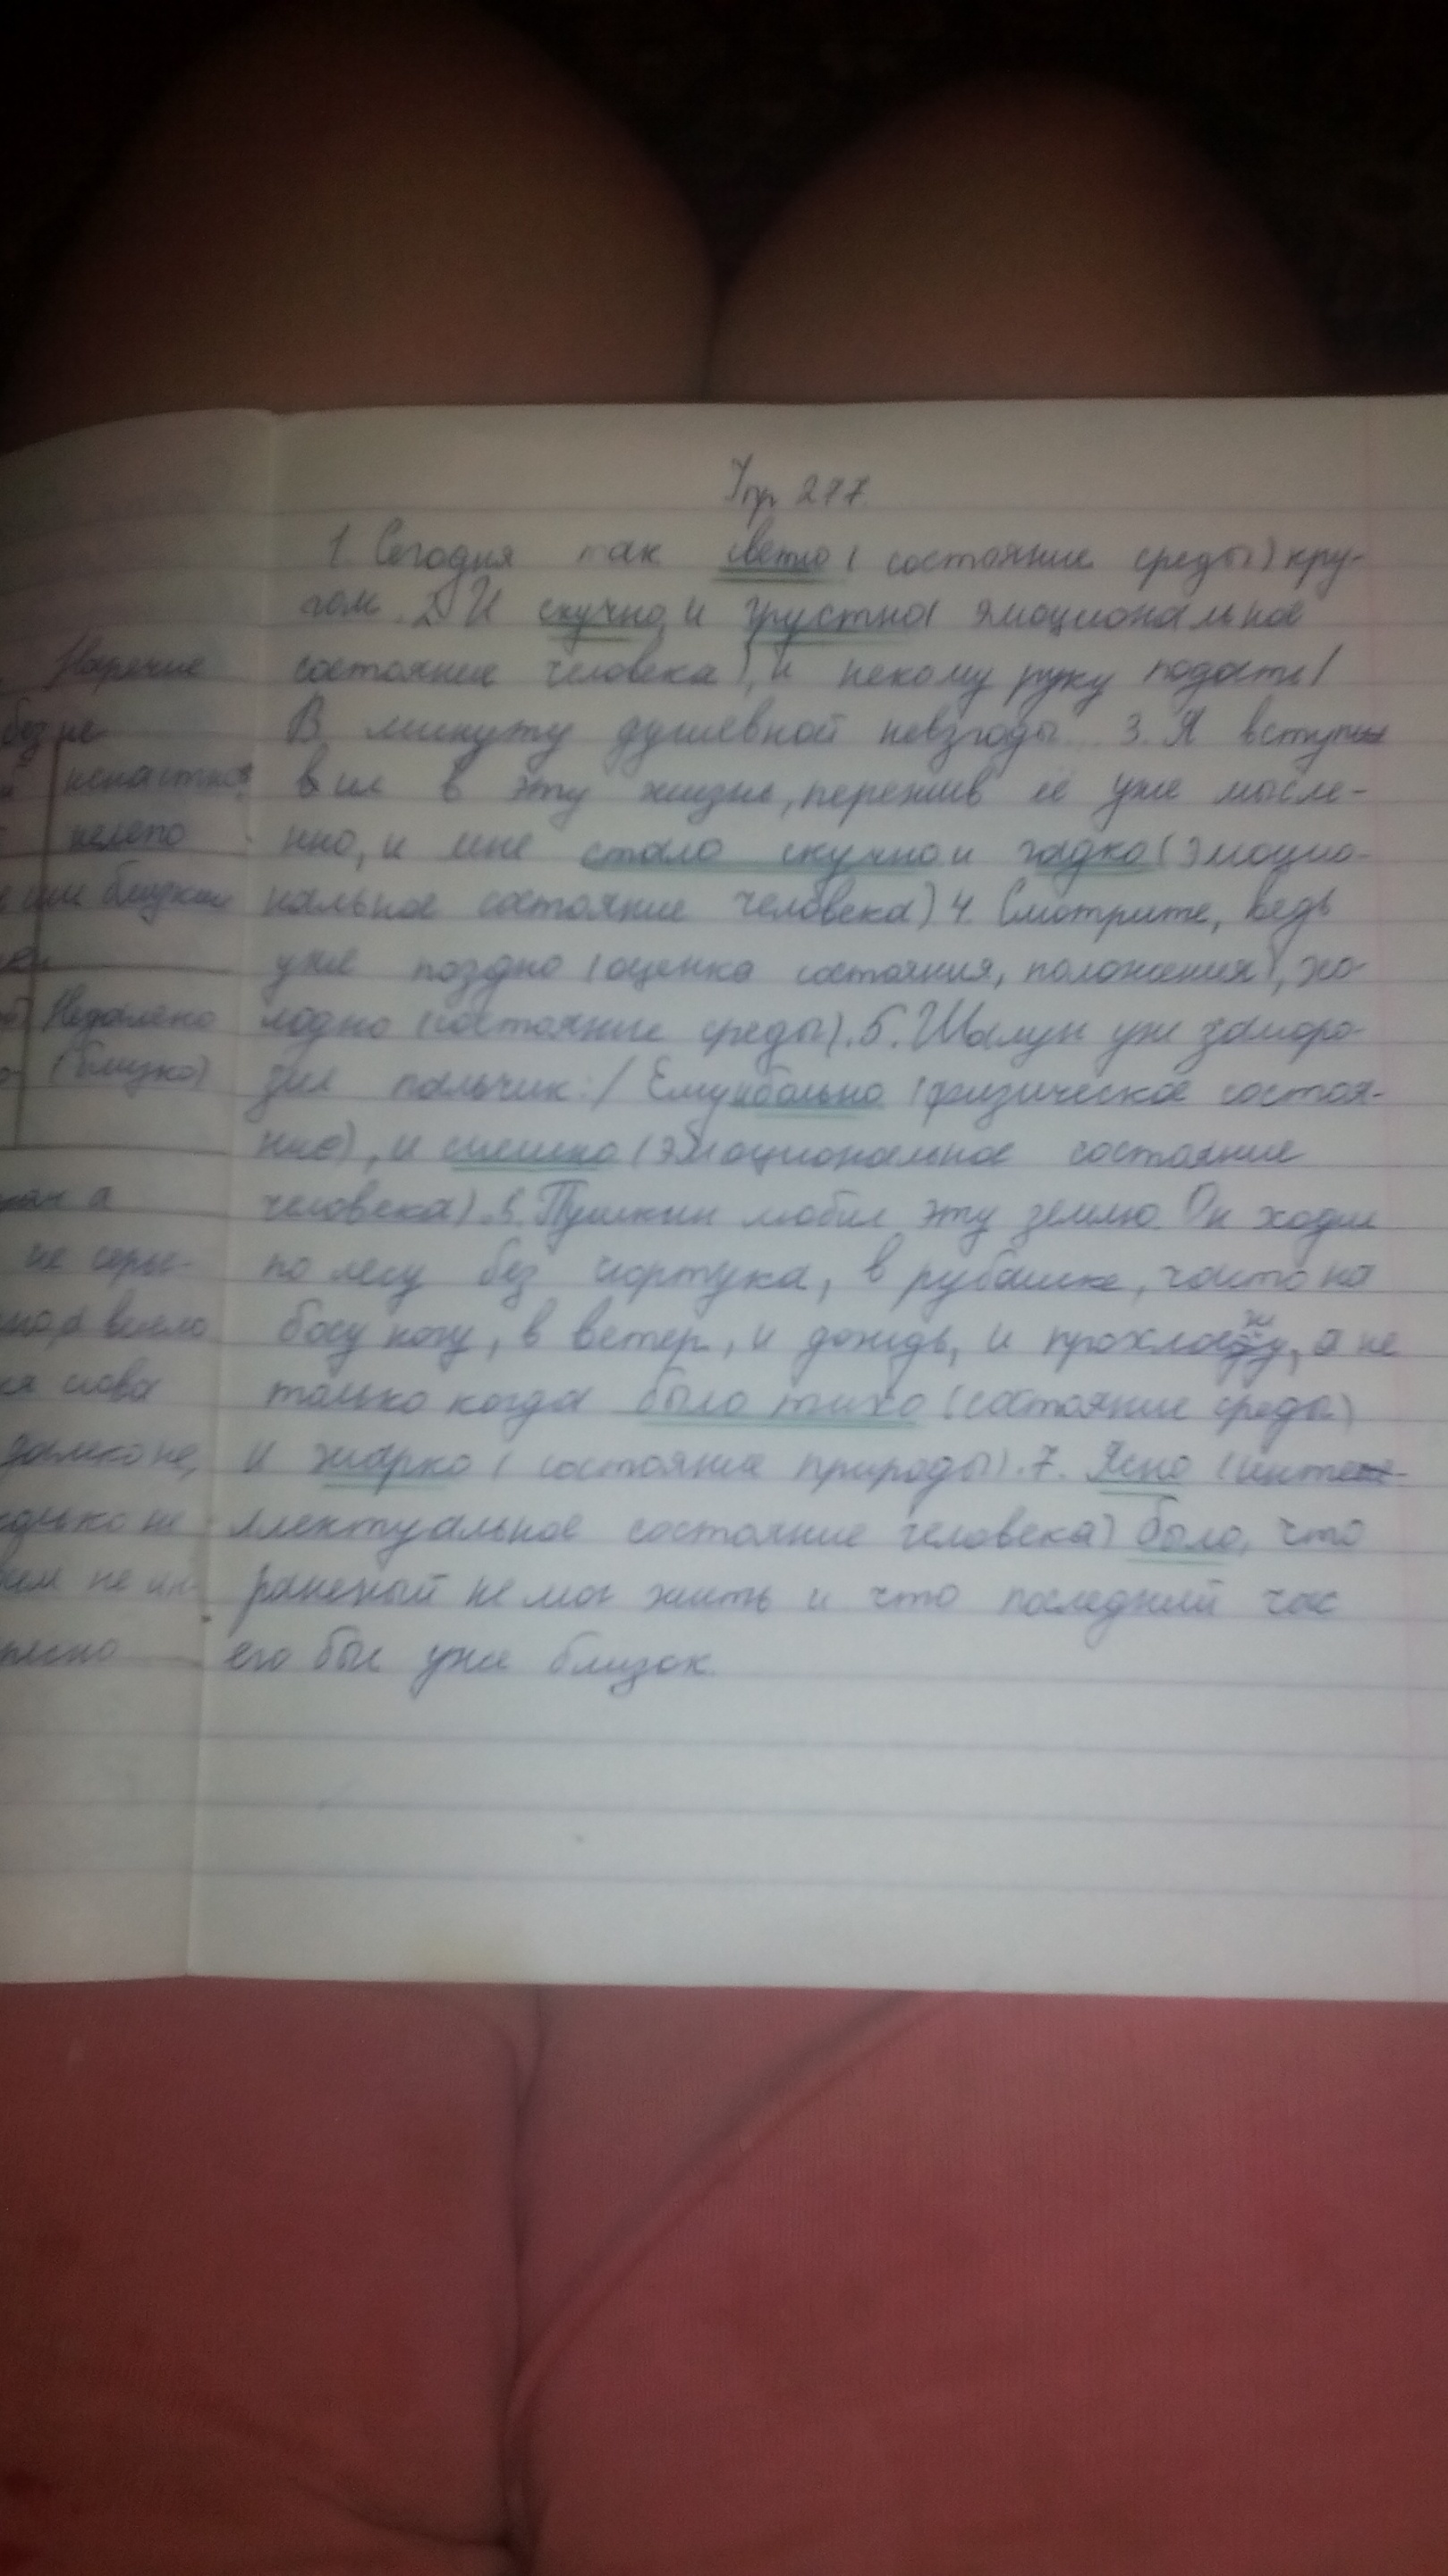 Упр 277.
1. Сегодня так светло (состояние среды) кру-
гом. 2. И скучно и грустно (эмоциональное
состояние человека), и некому руку подать /
В минуту душевной невзгоды... 3. Я вступ
вил в эту жизнь, пережив её уже мысле-
нно, и мне стало скучно и гадко (эмоцио-
нальное состояние человека) 4. Смотрите, ведь
уже поздно (оценка состояния, положения), хо-
лодно (состояние среды). 5. Шалун уже заморо-
зил пальчик: / Ему больно (физическое состоя-
ние), и смешно (эмоциональное состояние
человека). 6. Пушкин любил эту землю. Он ходил
по лесу без сюртука, в рубашке, часто на
босу ногу, в ветер, и дождь, и прохладу, а не
только когда было тихо (состояние среды)
и жарко (состояние природы). 7. Ясно (инте-
ллектуальное состояние человека) было, что
раненый не мог жить и что последний час
его был уже близок.
Наречие
без не
ненастно
нелепо
или близким
Недалеко
(близко)
а
не серь-
весело
слова
далеко не,
не
не ин-